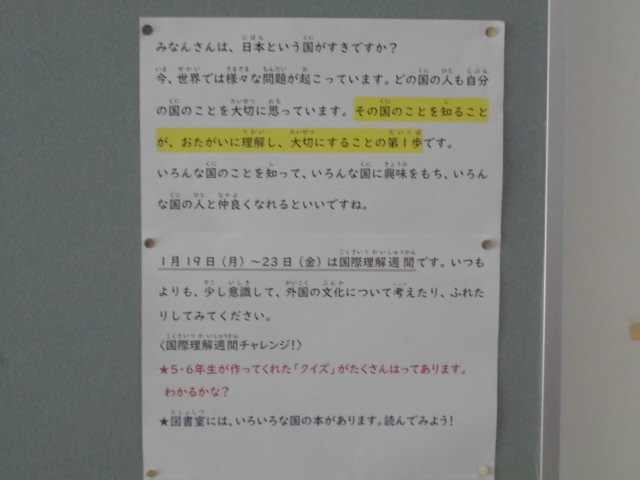 みなさんは、日本という国がすきですか？
今、世界では様々な問題が起こっています。どの国の人も自分
の国のことを大切に思っています。その国のことを知ること
が、おたがいに理解し、大切にすることの第1歩です。
いろんな国のことを知って、いろんな国に興味をもち、いろん
な国の人と仲良くなれるといいですね。
1月19日（月）～23日（金）は国際理解週間です。いつも
よりも、少し意識して、外国の文化について考えたり、ふれた
りしてみてください。
〈国際理解週間チャレンジ！〉
★5・6年生が作ってくれた「クイズ」がたくさんはってあります。
わかるかな？
★図書室には、いろいろな国の本があります。読んでみよう！